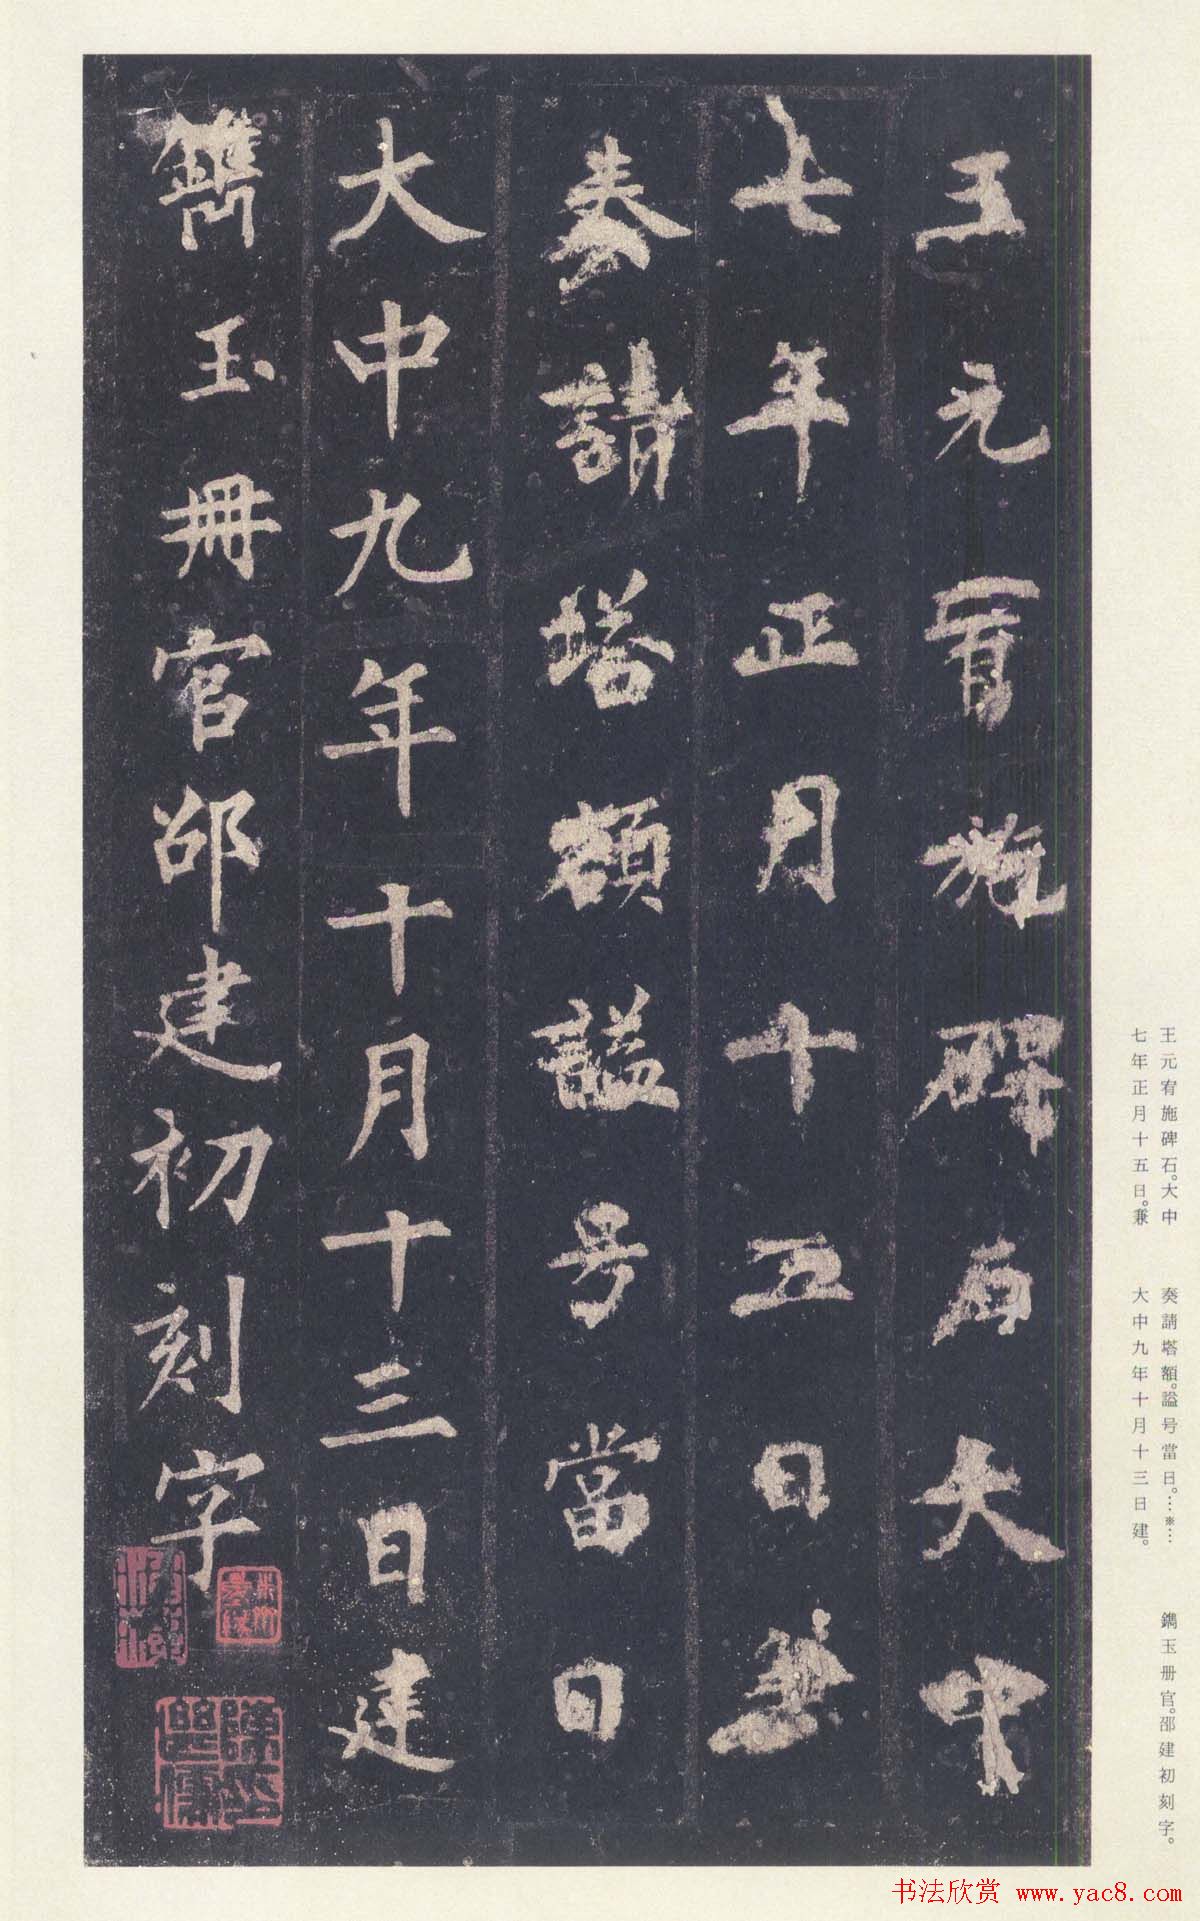 王元宥施碑石大中
七年正月十五日兼
奏請塔額謚号當日
大中九年十月十三日建
鐫玉册官邵建初刻字
王元宥施碑石。大中
七年正月十五日。兼
奏請塔額。謚号當日。…※…
大中九年十月十三日建。
鐫玉册官。邵建初刻字。
书法欣赏 www.yac8.com